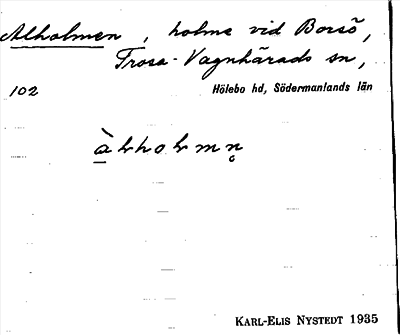 Alholmen, holme vid Borsö,
Trosa-Vagnhärads sn,
102 Hölebo hd, Södermanlands län
àƚhoƚmn̥
KARL-ELIS NYSTEDT 1935